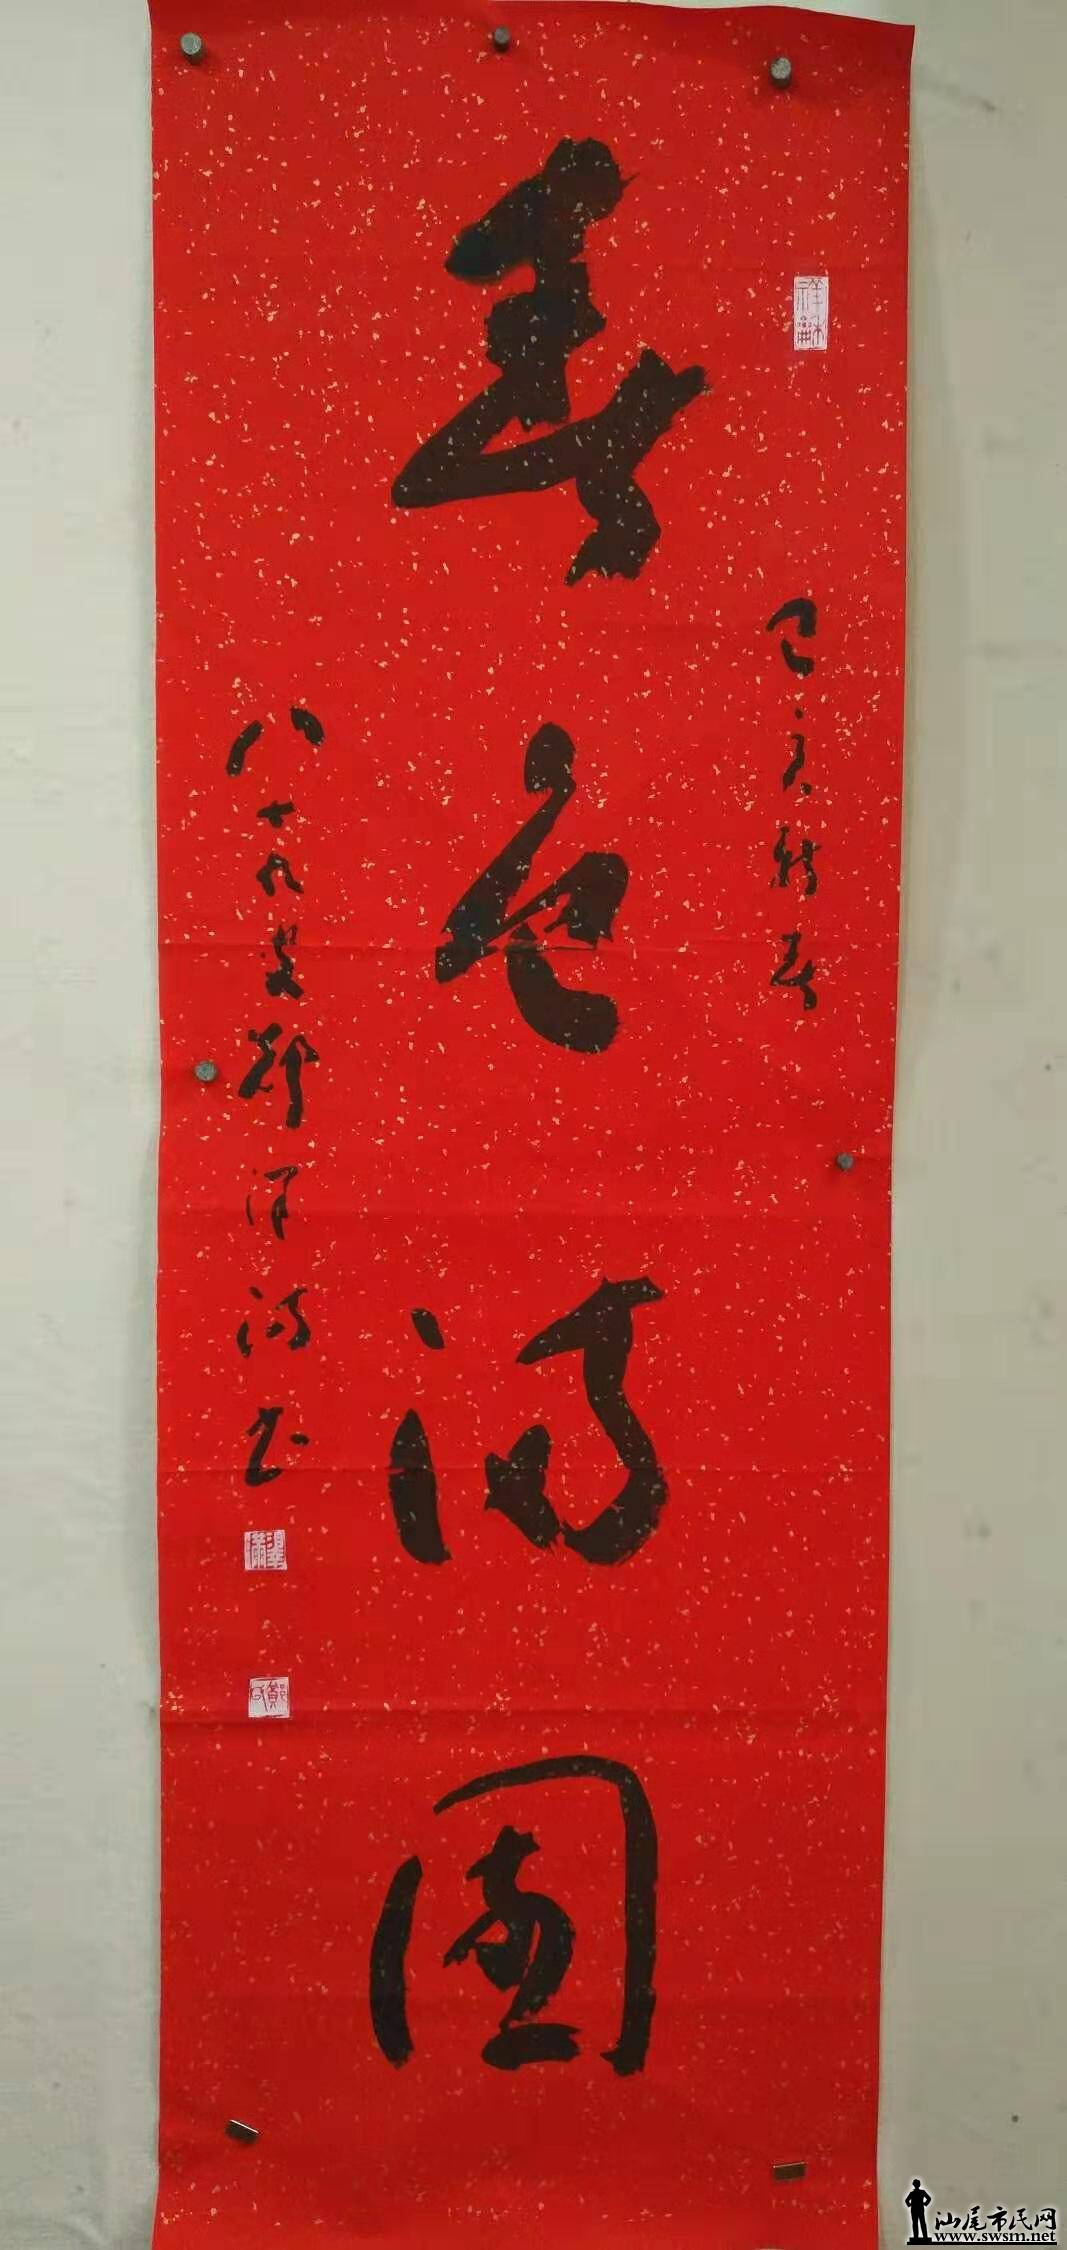 己亥新春
春色满园
八十九叟郑泽满书
汕尾市民网
www.swsm.net